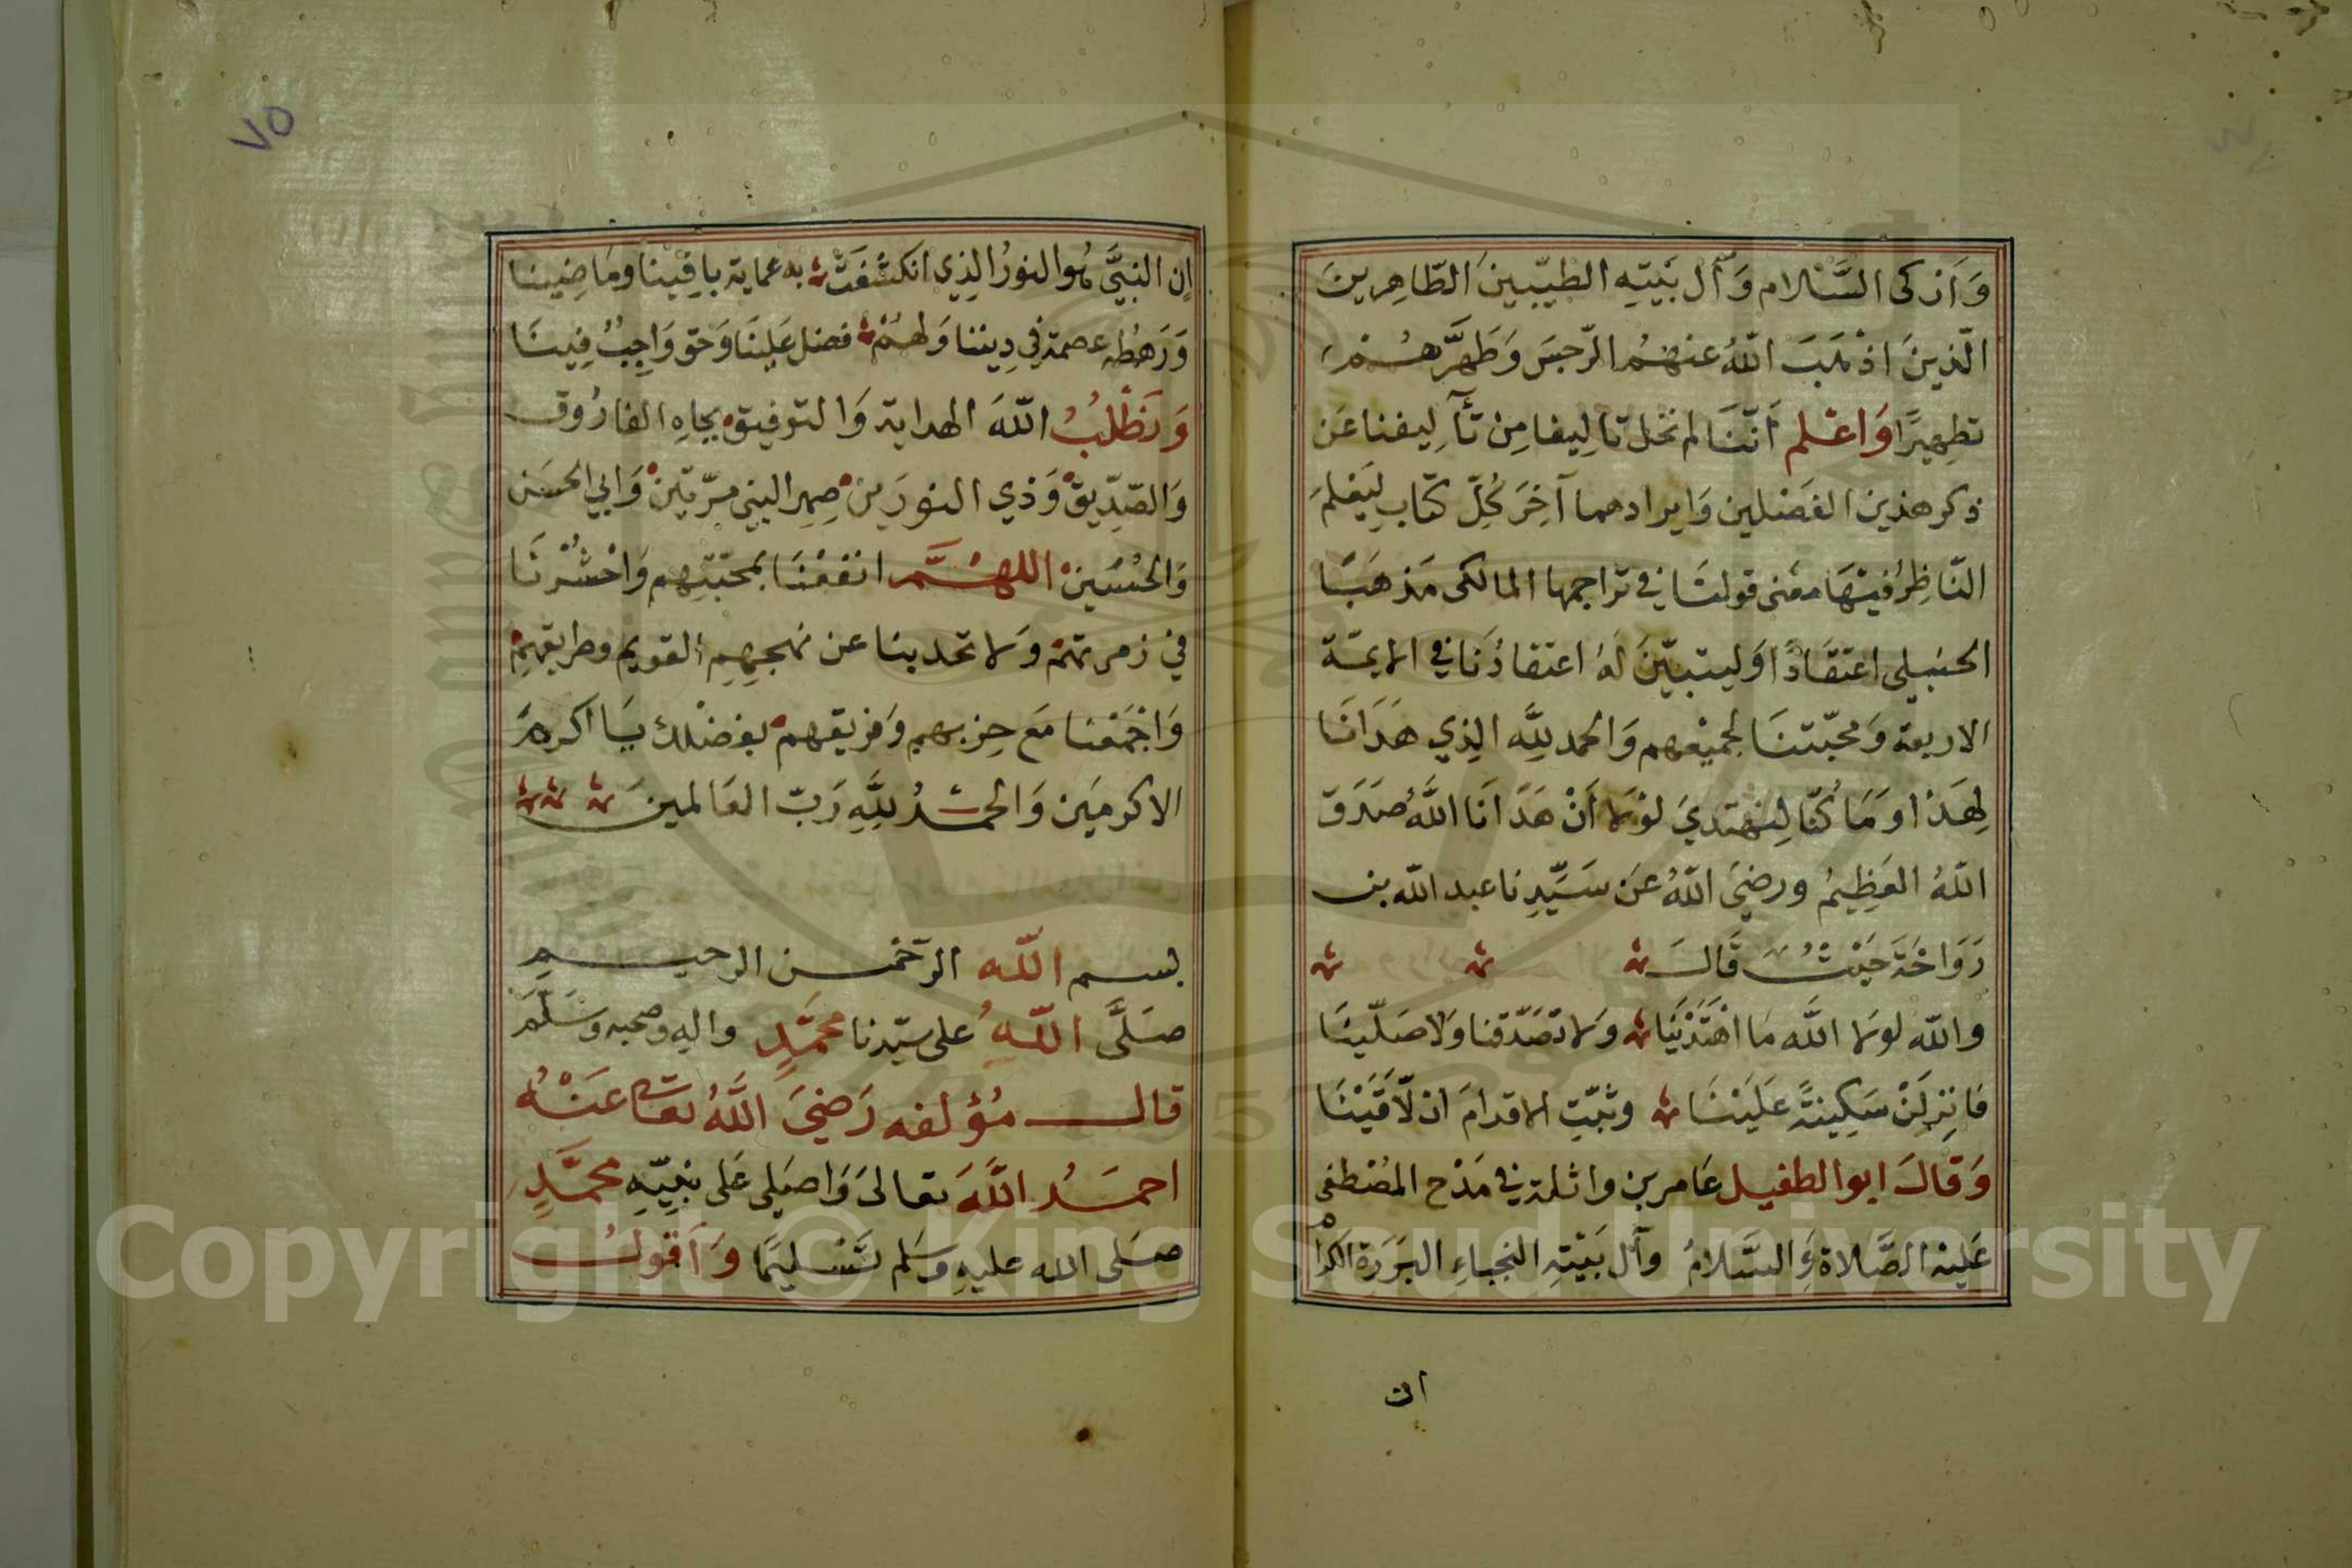 وَأَزكى السَّلام وَآل بَيْتِهِ الطيّبينَ الطّاهِرِينَ
الّذينَ اذْهَبَ اللّهُ عنهُم الرّجسَ وَطَهَّرهُمْ
تطهِيرًا وَاعْلم أَنّنَا لم نخل تاليفا مِنْ تآليفنا عَن
ذكر هذين الفَصْلين وَايرادهما آخِرَ كُلِّ كتابٍ لِيَعْلمَ
النّاظِرُ فيْهَا معْنى قولنَا في تراجمها المالكى مَذهَبًا
الحنبلى اعتقَادًا وَليتبيّنَ لهُ اعتقادُنَا في الايمّة
الاربعة وَمحبّتنَا لجميْعهم وَالحمد للَّه الذِي هَدَانَا
لِهَذا وَمَا كُنّا لِنهْتدِيَ لوْلا أَنْ هَدَانَا اللَّهُ صَدَقَ
اللّهُ العَظِيمُ ورضيَ اللّهُ عَن سَيِّدِنا عبد اللّه بن
رَوَاحَةَ حَيْثُ قَالَ
واللّه لولا اللَّه مَا اهْتَدَيْنَا ولا تصَدّقنا وَلا صَلّينَا
فَانزِلَنْ سَكِينَةً عَلَيْنَا وثبّتِ الاقدامَ ان لاَقَيْنَا
وَقَالَ ابو الطفيل عَامر بن واثلة في مَدْح المُصْطفى
عَليْهِ الصَّلاة وَالسَّلامُ وآل بَيْتِهِ النجباءِ البَرَرَة الكرام
ان
٧٥
اِن النبِيَّ هُو النورُ الذِي انكشفَتْ به عماية باقِيْنا ومَاضِينا
وَرَهْطُه عصمة في دِيننا وَلهُمْ فضل عَلينَا وَحق وَاجِبٌ فِينَا
وَنَطْلُبُ اللّهَ الهداية وَالتوفيق بجاهِ الفارُوق
وَالصّدِّيق وَذي النورَين صِهِر النبى مرّتين وَابي الحسَن
وَالحُسَين اللهُمَّ انفعْنَا بمحبّتِهم وَاحْشُرْنَا
في زمرتهمْ وَلا تحد بنا عن نهجِهِم القويم وطريقهِمْ
وَاجْمَعْنا مَع حِزبهم وَفريقهم بفضْلك يَا اكرمَ
الاكرمَين وَالحمْدُ للَّهِ رَبّ العَالمينَ
بسم اللّه الرّحْمن الرحيم
صَلَّى اللّهُ على سيّدنا محمَّدٍ واله وصحبه وسَلّمَ
قال مُؤلفه رَضيَ اللَّهُ تعالى عَنْهُ
احمَدُ اللَّهَ تعالىَ وَاصَلى عَلى نبِيّهِ محمَّدٍ
صَلى الله عليهِ وسَلم تَسْليمًا وَأَقولُ
Copyright © King Saud University